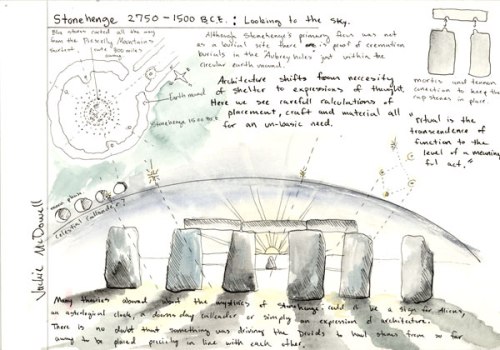 Stonehenge 2750 - 1500 B.C.E. : Looking to the sky.
Blue stones carted all the way
from the Mountains
over 200 miles
Although Stonehenge's primary focus was not
as a burial site there is proof of cremation
burials in the "Aubrey holes" just within the
circular earth mound.
Earth mound
Stonehenge
Architecture shifts from necessity
of shelter to expressions of thought.
Here we see carefull calculations of
placement, craft and material all
for an un-basic need.
mortis and tennon
conection to keep the
top stones in place.
"ritual is the
transcendence of
function to the
level of a meaning
ful act."
moon phase
Celestial Callendar?
Jackie McDowell
Many theories abound about the mystices of Stonehenge: could it be a sign for Aliens,
an astrological clock, a doomsday callendar or simply an expression of architecture.
There is no doubt that something was driving the Druids to haul stones from so far
away to be placed precicly in line with each other.